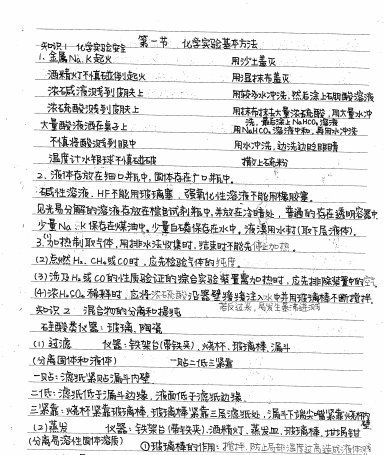 第一节 化学实验基本方法
知识1 化学实验安全
1. 金属Na、K起火 用沙土盖灭
酒精灯不慎碰倒起火 用湿抹布盖灭
浓碱液溅到皮肤上 用较多水冲洗,然后涂上硼酸溶液
浓硫酸溅到皮肤上 用抹布拭去大量浓硫酸,用大量水冲洗,最后涂上NaHCO₃溶液
大量酸液洒在桌子上 用NaHCO₃溶液中和,再用水冲洗
不慎将酸溅到眼中 用水冲洗,边洗边眨眼睛
温度计水银球不慎碰破 撒上硫粉
2. 液体存放在细口瓶中,固体存在广口瓶中.
碱性溶液、HF不能用玻璃塞,强氧化性溶液不能用橡胶塞.
见光易分解的溶液存放在棕色试剂瓶中,并放在冷暗处,普通的存在透明容器中
少量Na、K保存在煤油中,少量白磷保存在水中,液溴用水封(取下层液体).
3.(1)加热制取气体,用排水法收集时,结束时不能先停止加热.
(2)点燃H₂、CH₄或CO时,应先检验气体的纯度.
(3)涉及H₂或CO的性质验证的综合实验装置需加热时,应先排除装置中的空气
(4)浓H₂SO₄稀释时,应将浓硫酸沿器壁慢慢注入水中并用玻璃棒不断搅拌.
若反过来,易发生暴沸迸溅
知识2 混合物的分离和提纯
硅酸盐仪器:玻璃、陶瓷
(1)过滤 仪器:铁架台(带铁夹)、烧杯、玻璃棒、漏斗
(分离固体和液体) 一贴二低三紧靠
一贴:滤纸紧贴漏斗内壁
二低:滤纸低于漏斗边缘,液面低于滤纸边缘.
三紧靠:烧杯紧靠玻璃棒,玻璃棒紧靠三层滤纸处,漏斗下端尖嘴紧靠烧杯内壁
(2)蒸发 仪器:铁架台(带铁夹)、酒精灯、蒸发皿、玻璃棒、坩埚钳
(分离易溶性固体溶质) ①玻璃棒的作用:搅拌,防止局部温度过高造成液体飞溅